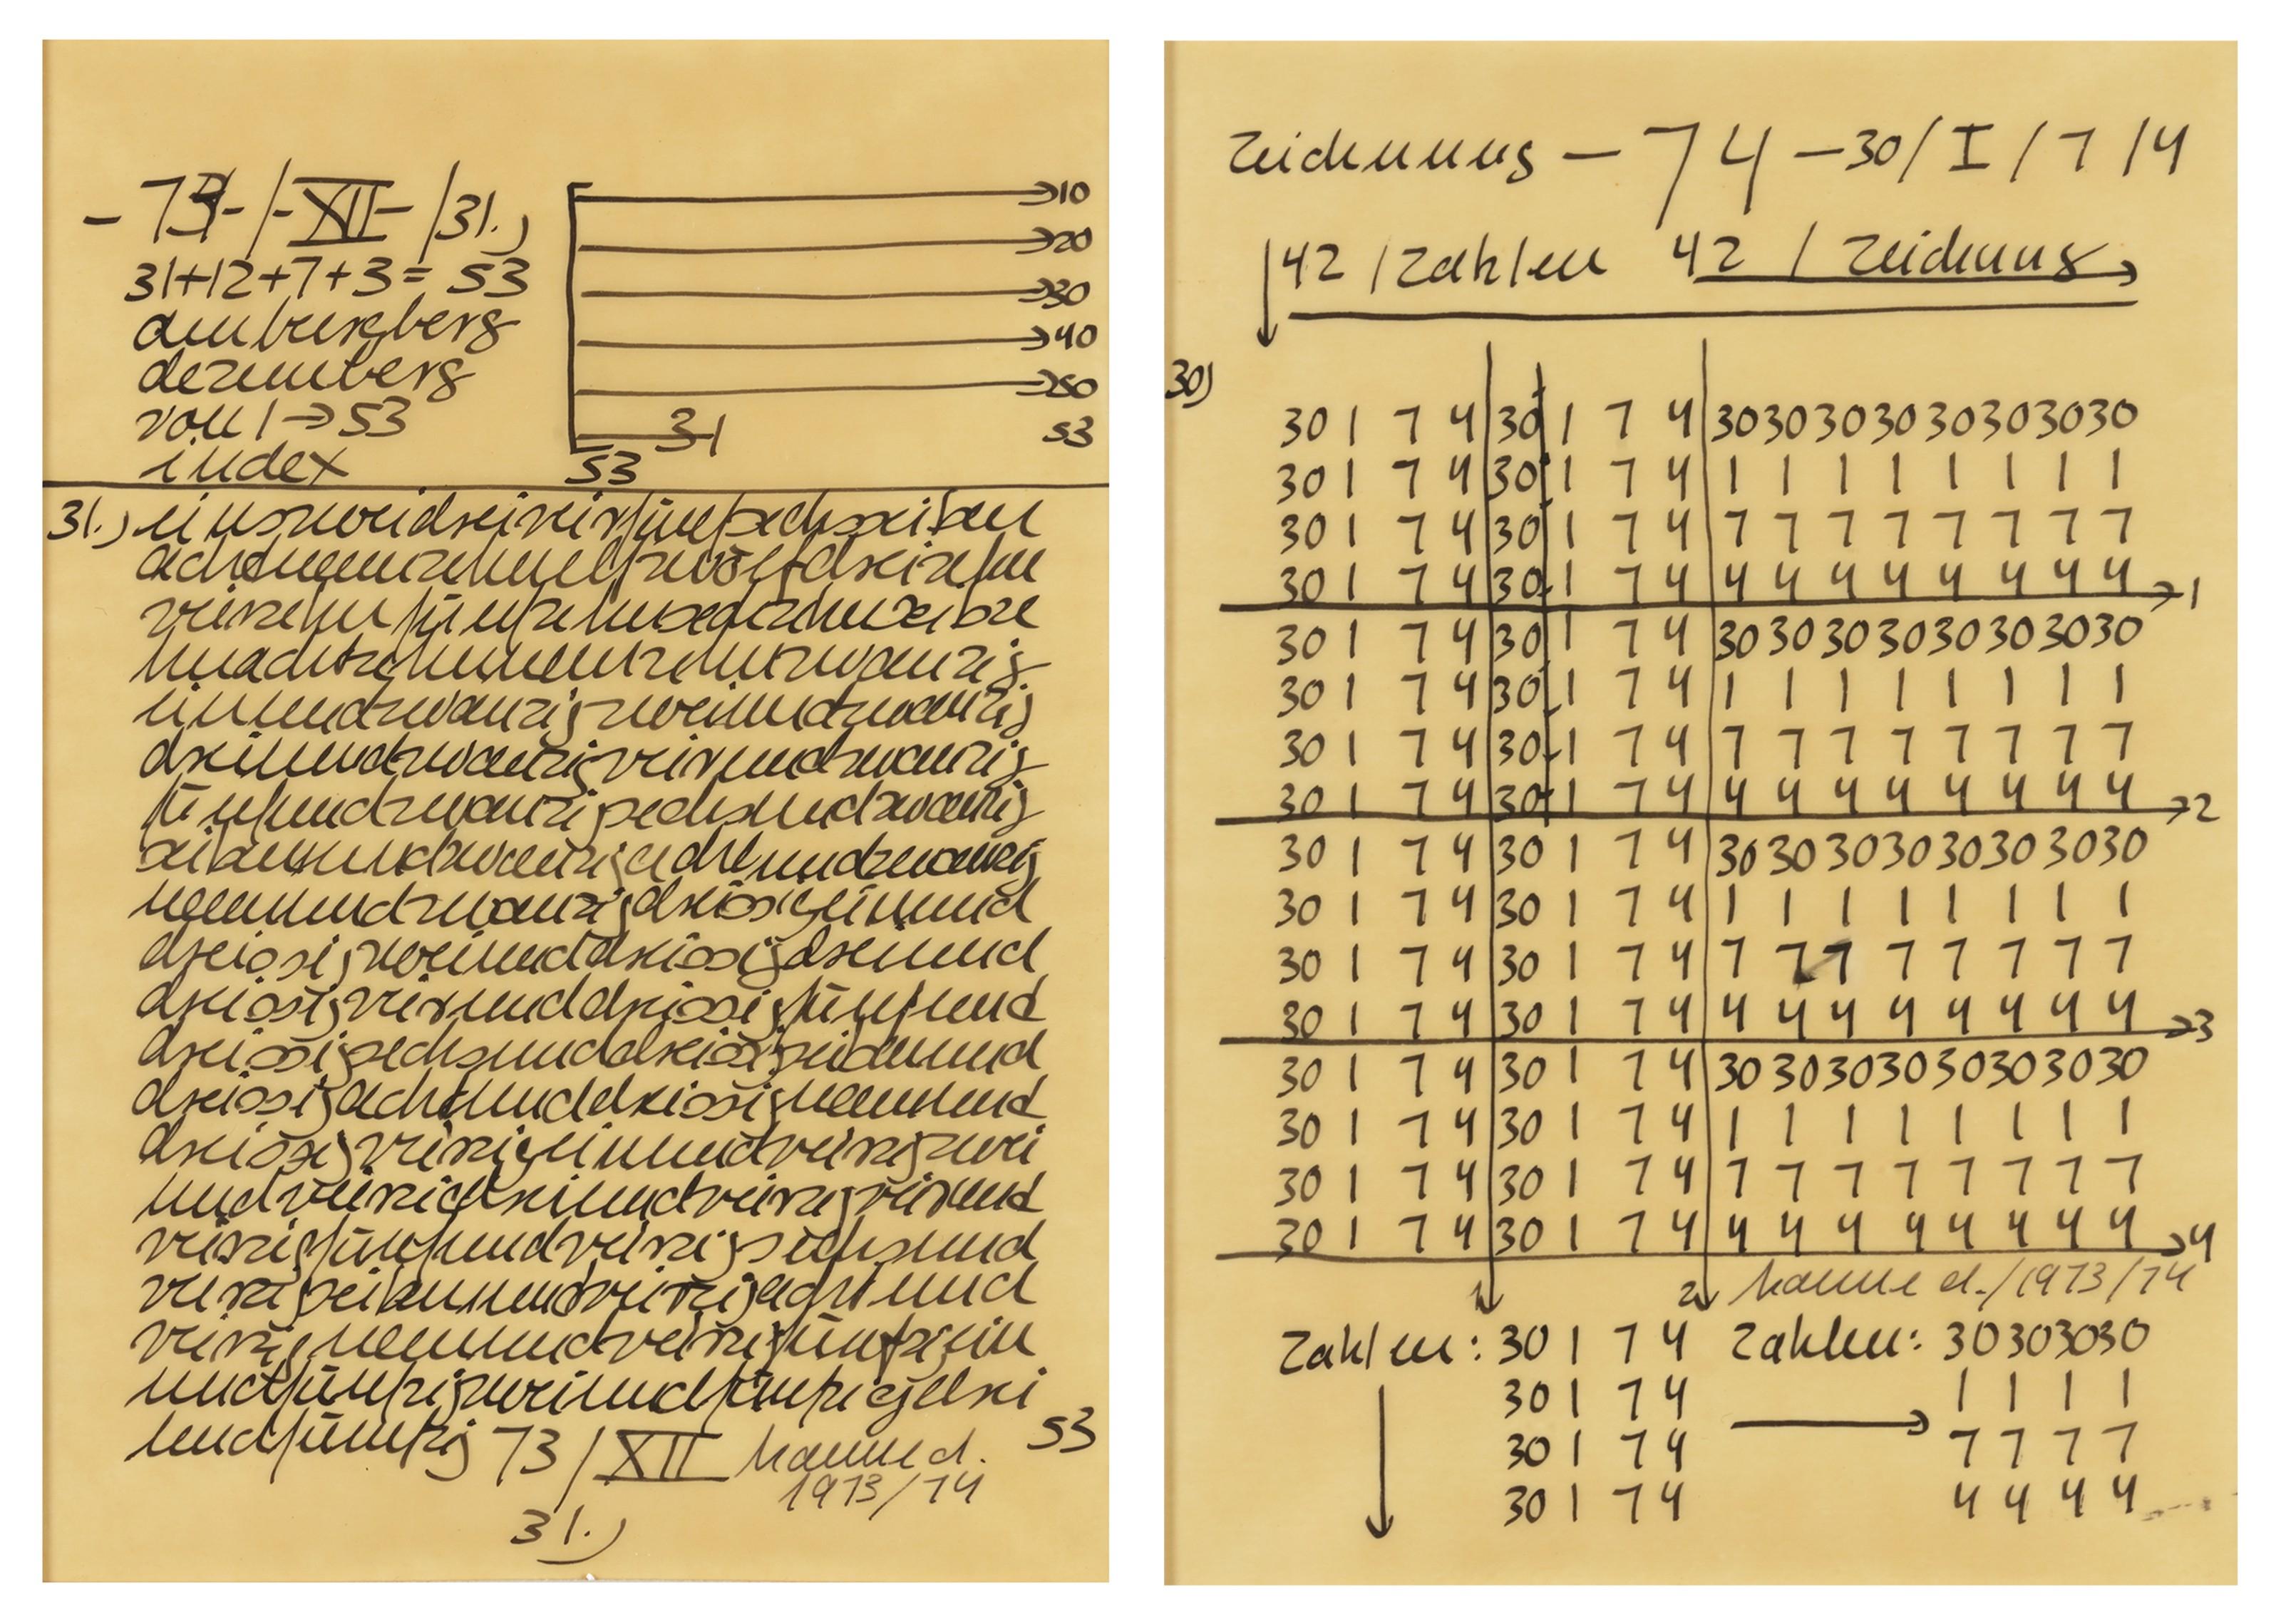 -73-/-XII-/31.)
31+12+7+3= 53
am burgberg
dezemberg
von 1 → 53
index
→10
→20
→30
→40
→50
31 53
53
31.) einszweidreivierfünfsechssieben
achtneunzehnelfzwölfdreizehn
vierzehnfünfzehnsechzehnsiebze
hnachtzehnneunzehnzwanzig
einundzwanzigzweiundzwanzig
dreiundzwanzigvierundzwanzig
fünfundzwanzigsechsundzwanzig
siebenundzwanzigachtundzwanzig
neunundzwanzigdreissigeinund
dreissigzweiunddreissigdreiund
dreissigvierunddreissigfünfund
dreissigsechsunddreissigsiebenund
dreissigachtunddreissigneunund
dreissigvierzigeinundvierzigzwei
undvierzigdreiundvierzigvierund
vierzigfünfundvierzigsechsund
vierzigsiebenundvierzigachtund
vierzigneunundvierzigfünfzigein
undfünfzigzweiundfünfzigdrei
undfünfzig 73/XII hanne d. 53
1973/74
31.)
Zeichnung – 74 – 30/I/7/4
↓ 42 / Zahlen 42 / Zeichnung →
30)
30 1 7 4 30 1 7 4 30 30 30 30 30 30 30 30
30 1 7 4 30 1 7 4 1 1 1 1 1 1 1 1
30 1 7 4 30 1 7 4 7 7 7 7 7 7 7 7
30 1 7 4 30 1 7 4 4 4 4 4 4 4 4 4 →1
30 1 7 4 30 1 7 4 30 30 30 30 30 30 30 30
30 1 7 4 30 1 7 4 1 1 1 1 1 1 1 1
30 1 7 4 30 1 7 4 7 7 7 7 7 7 7 7
30 1 7 4 30 1 7 4 4 4 4 4 4 4 4 4 →2
30 1 7 4 30 1 7 4 30 30 30 30 30 30 30 30
30 1 7 4 30 1 7 4 1 1 1 1 1 1 1 1
30 1 7 4 30 1 7 4 7 7 7 7 7 7 7 7
30 1 7 4 30 1 7 4 4 4 4 4 4 4 4 4 →3
30 1 7 4 30 1 7 4 30 30 30 30 30 30 30 30
30 1 7 4 30 1 7 4 1 1 1 1 1 1 1 1
30 1 7 4 30 1 7 4 7 7 7 7 7 7 7 7
30 1 7 4 30 1 7 4 4 4 4 4 4 4 4 4 →4
1↓ 2↓ hanne d./1973/74
Zahlen: 30 1 7 4 Zahlen: 30 30 30 30
30 1 7 4 1 1 1 1
30 1 7 4 → 7 7 7 7
30 1 7 4 4 4 4 4